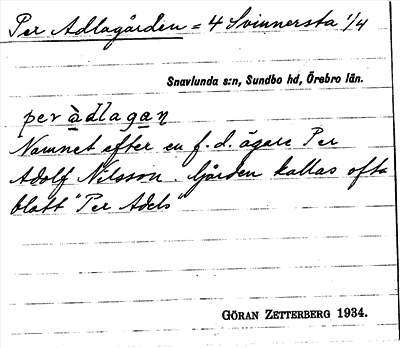 Per Adlagården = 4 Svinnersta 1/4
Snavlunda s:n, Sundbo hd, Örebro län.
per àdlagan
Namnet efter en f.d. ägare Per
Adolf Nilsson. Gården kallas ofta
blott "Per Adels"
GÖRAN ZETTERBERG 1934.